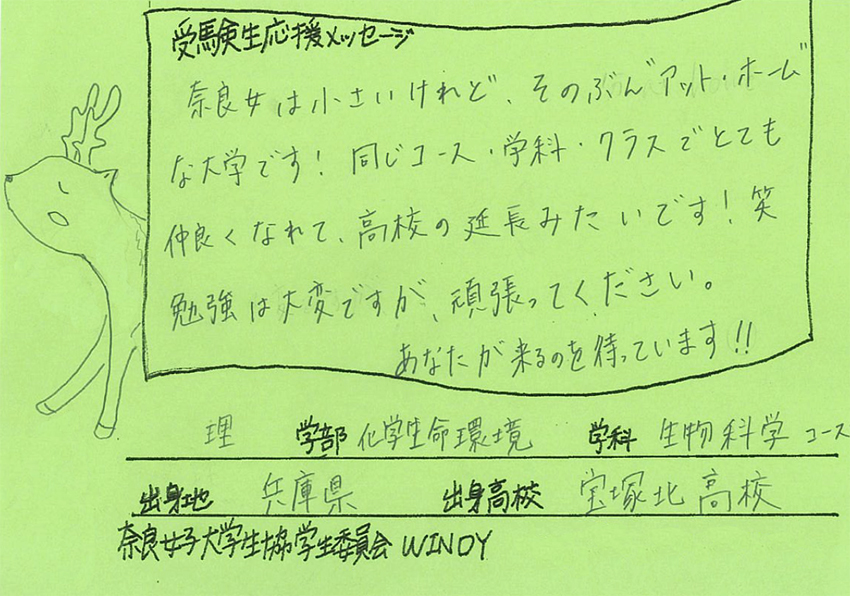 受験生応援メッセージ
奈良女は小さいけれど、そのぶんアット・ホーム
な大学です！同じコース・学科・クラスでとても
仲良くなれて、高校の延長みたいです！笑
勉強は大変ですが、頑張ってください。
あなたが来るのを待っています!!
理 学部 化学生命環境 学科 生物科学 コース
出身地 兵庫県 出身高校 宝塚北高校
奈良女子大学生協学生委員会 WINDY